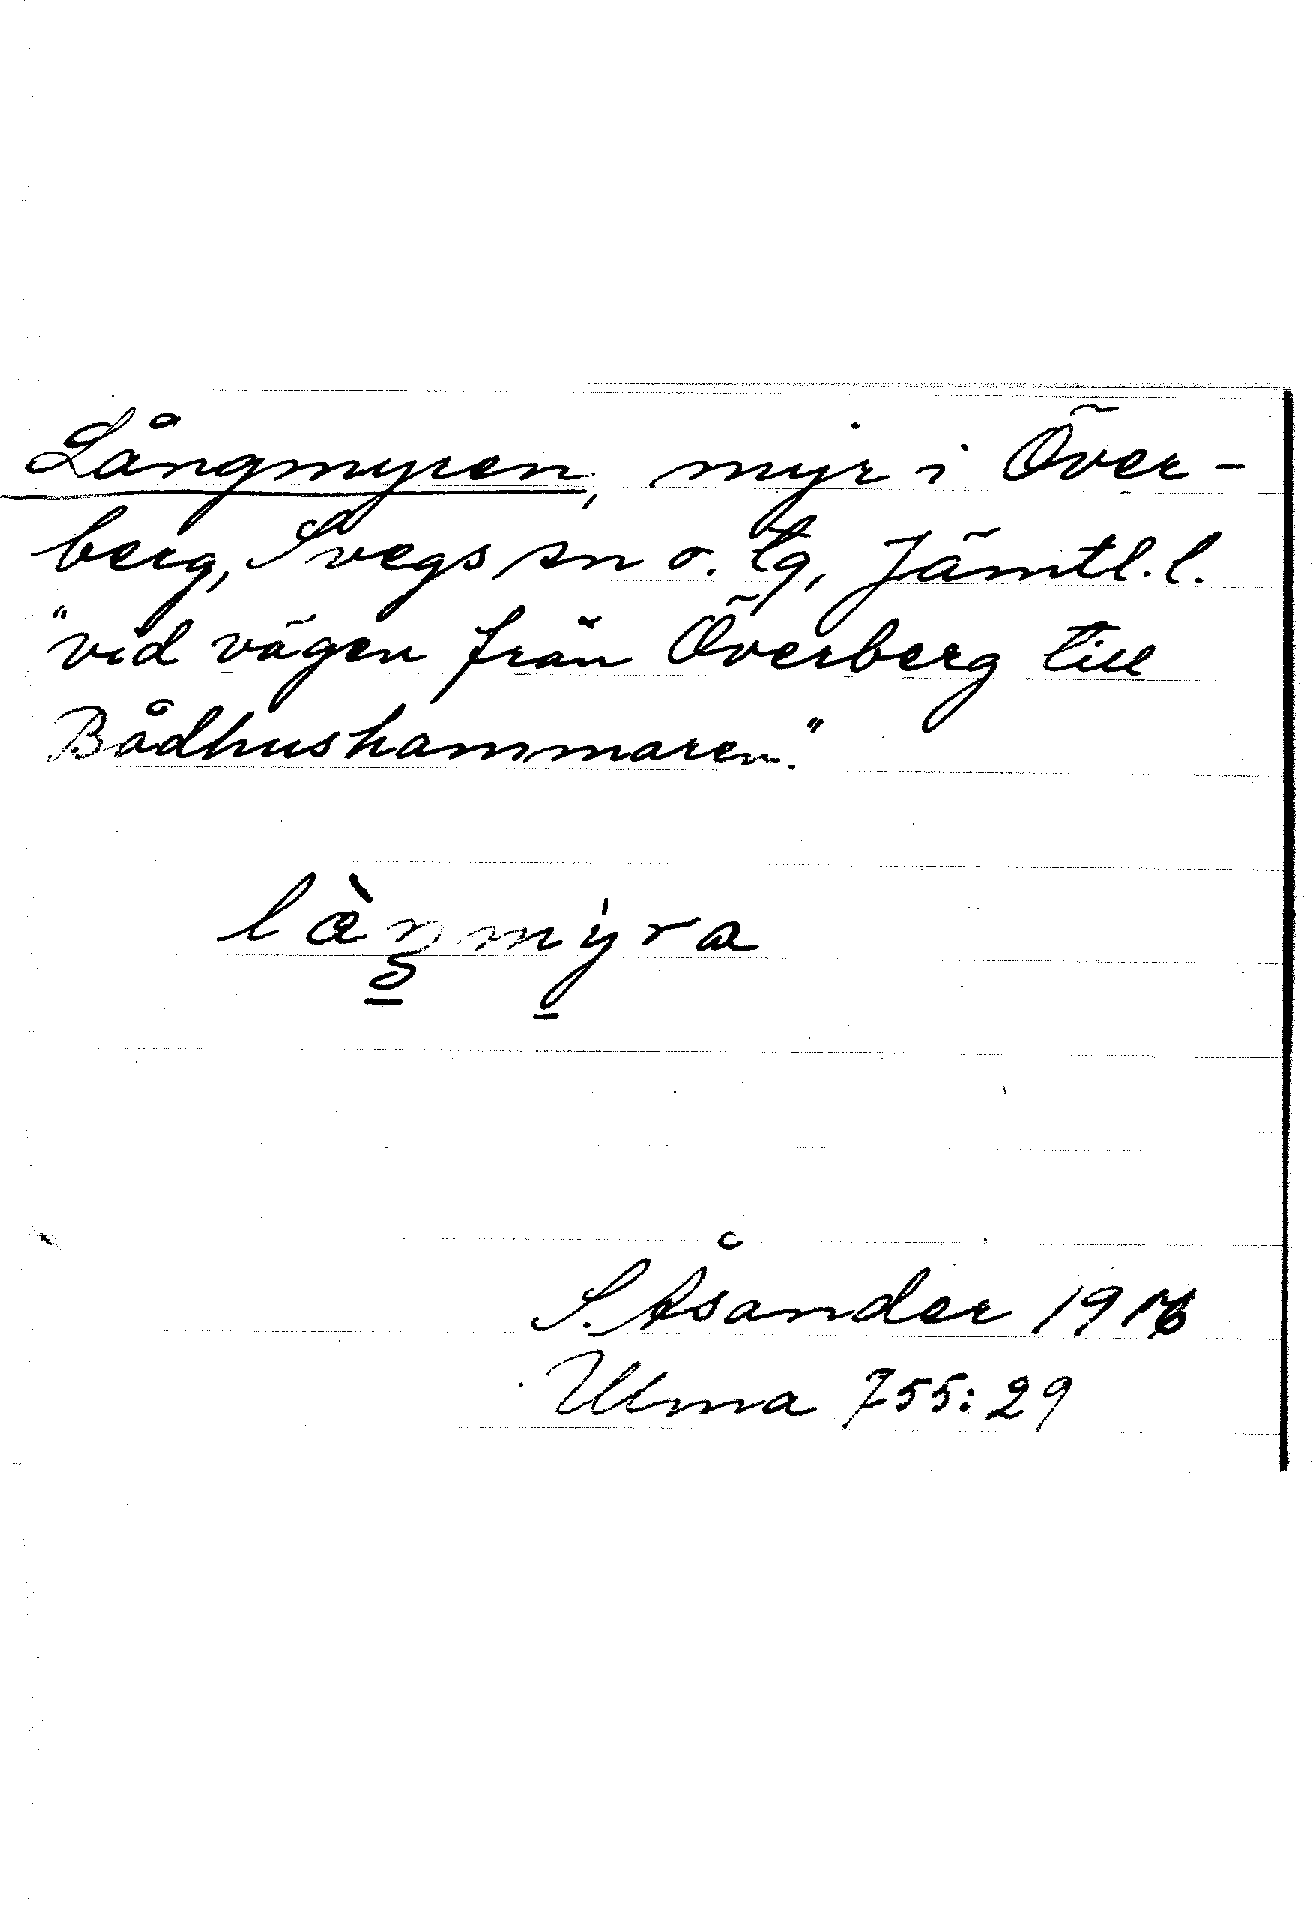 Långmyren, myr i Över-
berg, Svegs sn o. tg, Jämtl. l.
"vid vägen från Överberg till
Bådhushammaren."
làŋmy̍ra
S. Åsander 1916
Ulma 755:29